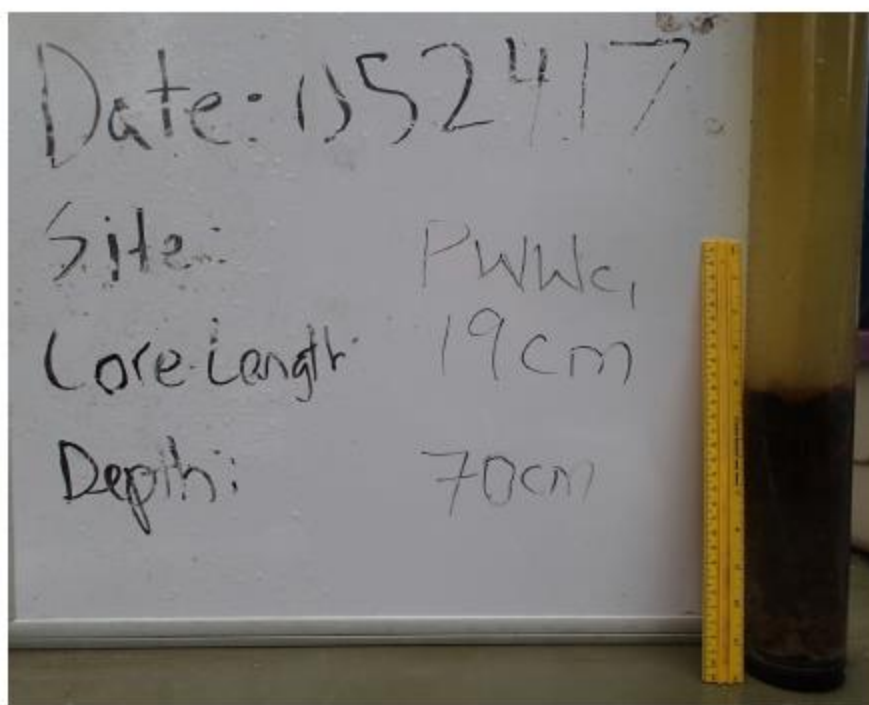 Date: 052417
Site: PWWC1
Core Length 19cm
Depth: 70cm